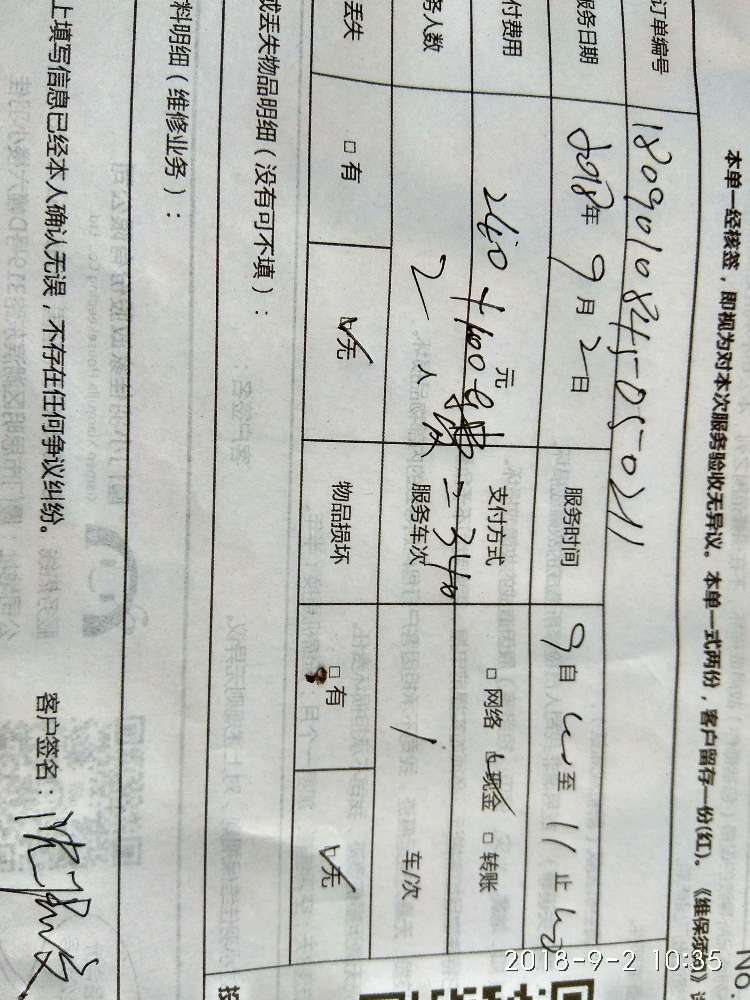 No.
本单一经核签，即视为对本次服务验收无异议。本单一式两份，客户留存一份(红)。《维保须知》
订单编号 1809010845050211
服务日期 2018年9月2日 服务时间 9自 至11止
付费用 240+100 元 =340 支付方式 □网络 ☑现金 □转账
务人数 2 人 服务车次 1 车/次
丢失 □有 ☑无 物品损坏 □有 ☑无
或丢失物品明细（没有可不填）：
料明细（维修业务）：
上填写信息已经本人确认无误，不存在任何争议纠纷。 客户签名：
2018-9-2 10:35